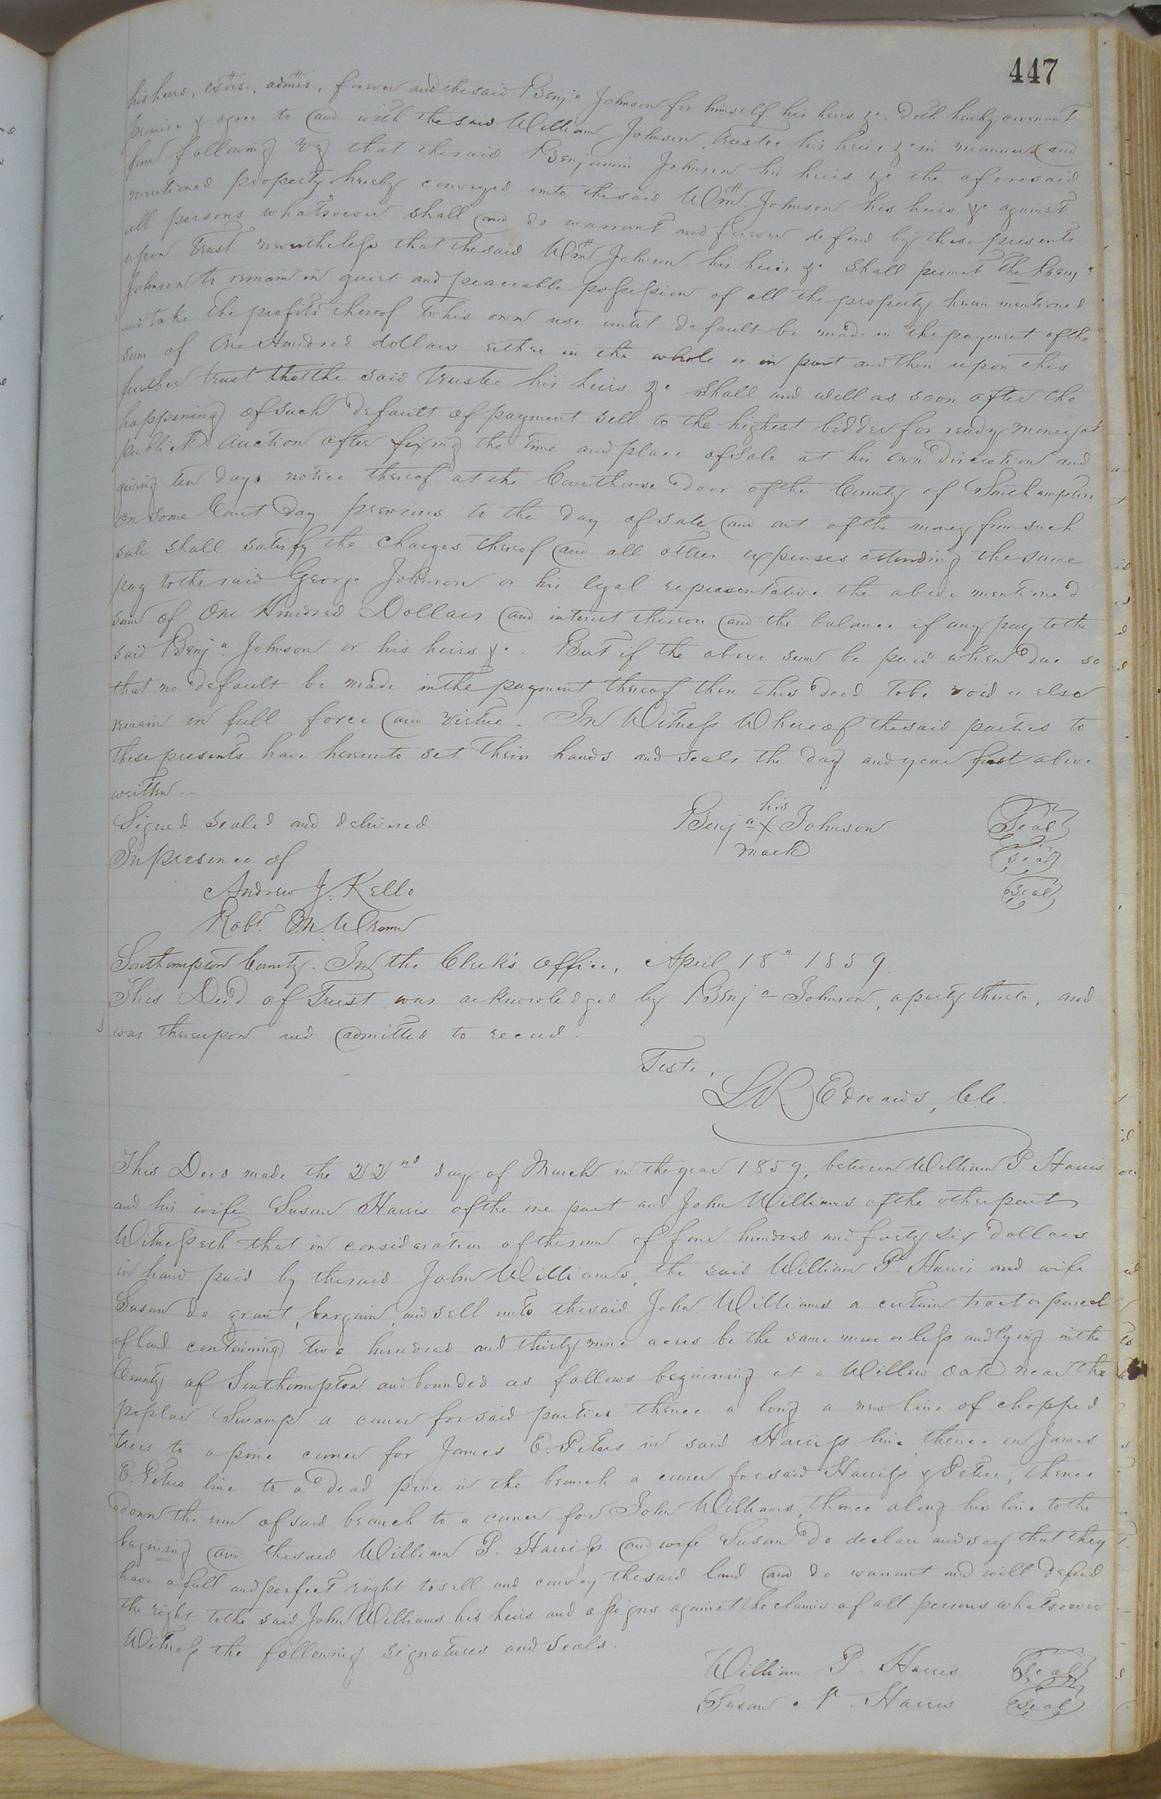 447
his heirs, exors, admrs, forever and the said Benja Johnson for himself his heirs &c. doth hereby covenant
promise & agree to and with the said William Johnson, trustee his heirs &c in manner and
form following viz that the said Benjamin Johnson his heirs &c the aforesaid
mentioned property hereby conveyed unto the said Wm. Johnson his heirs &c against
all persons whatsoever shall and do warrant and forever defend by these presents
upon trust nevertheless that the said Wm Johnson his heirs &c shall permit the Benja
Johnson to remain in quiet and peaceable possession of all the property herein mentioned
and take the profits thereof to his own use until default be made in the payment of the
sum of One Hundred dollars either in the whole or in part and then upon this
further trust that the said trustee his heirs &c shall and will as soon after the
happening of such default of payment sell to the highest bidder for ready money at
public auction after fixing the time and place of sale at his own discretion and
giving ten days notice thereof at the Courthouse door of the County of Southampton
on some Court day previous to the day of sale and out of the money from such
sale shall satisfy the charges thereof and all other expenses attending the same
pay to the said George Johnson or his legal representative the above mentioned
sum of One Hundred Dollars and interest thereon and the balance if any pay to the
said Benja Johnson or his heirs &c. But if the above sum be paid when due so
that no default be made in the payment thereof then this deed to be void or else
remain in full force and virtue. In Witness Whereof the said parties to
these presents have hereunto set their hands and seals the day and year first above
written..
Signed sealed and delivered
In presence of
Andrew J. Kello
Robt. M. W
his
Benja X Johnson Seal
mark Seal
Seal
Southampton County. In the Clerk's Office, April 18" 1859.
This Deed of Trust was acknowledged by Benja Johnson, a party thereto, and
was thereupon and admitted to record.
Teste,
L R Edwards, Clk.
This Deed made the 22nd day of March in the year 1859, between William P. Harris
and his wife Susan Harris of the one part and John Williams of the other part
Witnesseth that in consideration of the sum of four hundred and forty six dollars
in hand paid by the said John Williams, the said William P. Harris and wife
Susan do grant, bargain, and sell unto the said John Williams a certain tract or parcel
of land containing two hundred and thirty nine acres be the same more or less and lying in the
County of Southampton and bounded as follows begining at a Willow oak near the
poplar Swamp a corner for said parties thence a long a new line of chopped
trees to a pine corner for James E. Peters in said Harriss line, thence on James
E. Peters line to a dead pine in the branch a corner for said Harriss & Peters, thence
down the run of said branch to a corner for John Williams, thence along his line to the
begining and the said William P. Harriss and wife Susan do declare and say that they
have a full and perfect right to sell and convey the said land and do warrant and will defend
the right to the said John Williams his heirs and assigns against the claims of all persons whatsoever
Witness the following signatures and seals.
William P. Harris Seal
Susan N. Harris Seal